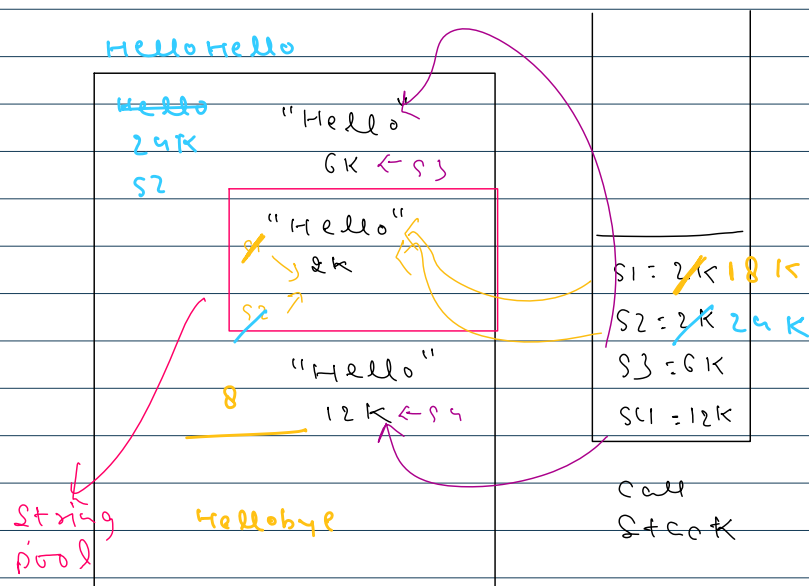 HelloHello
Hello
24K
S2
"Hello"
6K ← S3
"Hello"
S1
2K
S2
"Hello"
8
12K ← S4
Hellobye
String
pool
S1 = 2K 18K
S2 = 2K 24K
S3 = 6K
S4 = 12K
Call
Stack